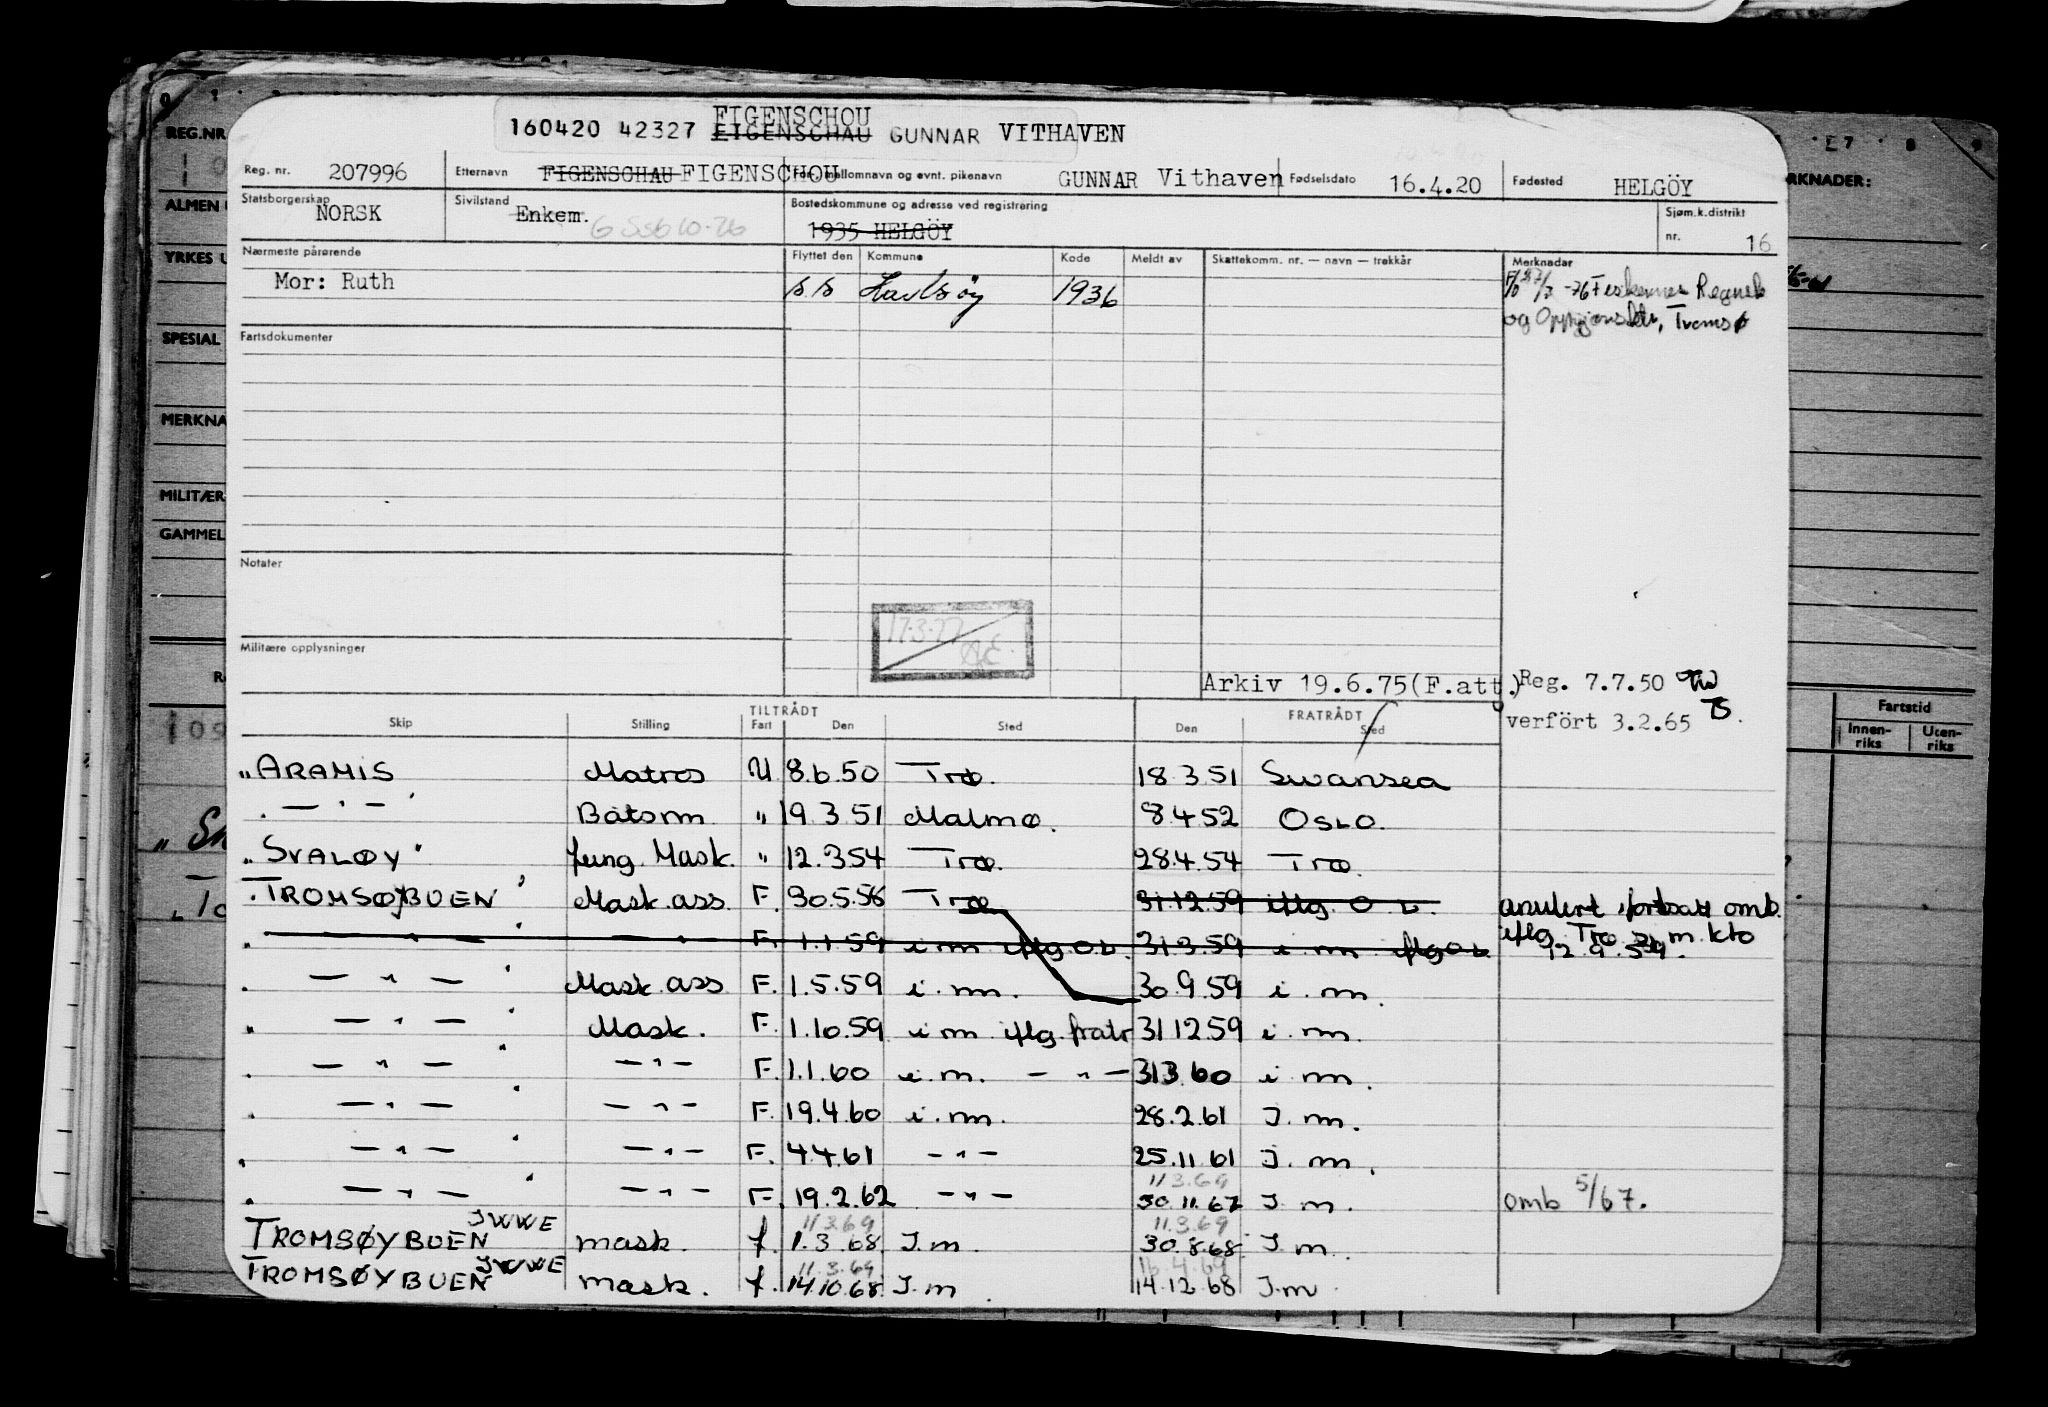 FIGENSCHOU
160420 42327 EIGENSCHAU GUNNAR VITHAVEN
Reg. nr. 207996 Etternavn FIGENSCHAU FIGENSCHOU For-, mellomnavn og evnt. pikenavn GUNNAR Vithaven Fødselsdato 16.4.20 Fødested HELGÖY
Statsborgerskap NORSK Sivilstand Enkem. Bostedskommune og adresse ved registrering 1935 HELGÖY Sjøm.k.distrikt nr. 16
Nærmeste pårørende Flyttet den Kommune Kode Meldt av Skattekomm. nr. — navn — trekkår Merknader
Mor: Ruth Karlsöy 1936
og Tromsø
Fartsdokumenter
Notater
17.3.77
Militære opplysninger
Arkiv 19.6.75(F.att.) Reg. 7.7.50
verfört 3.2.65
Skip Stilling TILTRÅDT Fart Den Sted FRATRÅDT Den Sted
"ARAMIS Matros U 8.6.50 Trø. 18.3.51 Swansea
— " — Båtsm. " 19.3.51 Malmø. 8.4.52 OSLO.
"SVALØY" Jung. Mask. " 12.3.54 Trø. 28.4.54 Trø.
"TROMSØYBUEN" Mask. ass. F. 30.5.56 Trø 31.12.59 iflg. O.b. anulert fortsatt omb.
— " — — " — F. 1.1.59 i.m iflg O.b. 31.3.59 i.m iflg O.b. iflg Trø s.m.kto
12.9.59.
— " — Mask. ass F. 1.5.59 i.m. 30.9.59 i.m.
— " — Mask. F. 1.10.59 i.m iflg. fratr 31.12.59 i.m.
— " — — " — F. 1.1.60 i.m. — " — 31.3.60 i.m.
— " — — " — F. 19.4.60 i.m. 28.2.61 I.m.
— " — — " — F. 4.4.61 — " — 25.11.61 I.m.
11.3.69
— " — — " — F. 19.2.62 — " — 30.11.67 I.m. omb 5/67.
JWWE 11.3.69 11.3.69
TROMSØYBUEN mask. f. 1.3.68. I.m. 30.8.68. I.m.
JWWE 11.3.69 16.4.69
TROMSØYBUEN mask. f. 14.10.68. I.m. 14.12.68 I.m
REG.NR
ALMEN
YRKES
SPESIAL
MERKNA
MILITÆR
GAMMEL
RKNADER:
Fartstid
Innen-riks Uten-riks